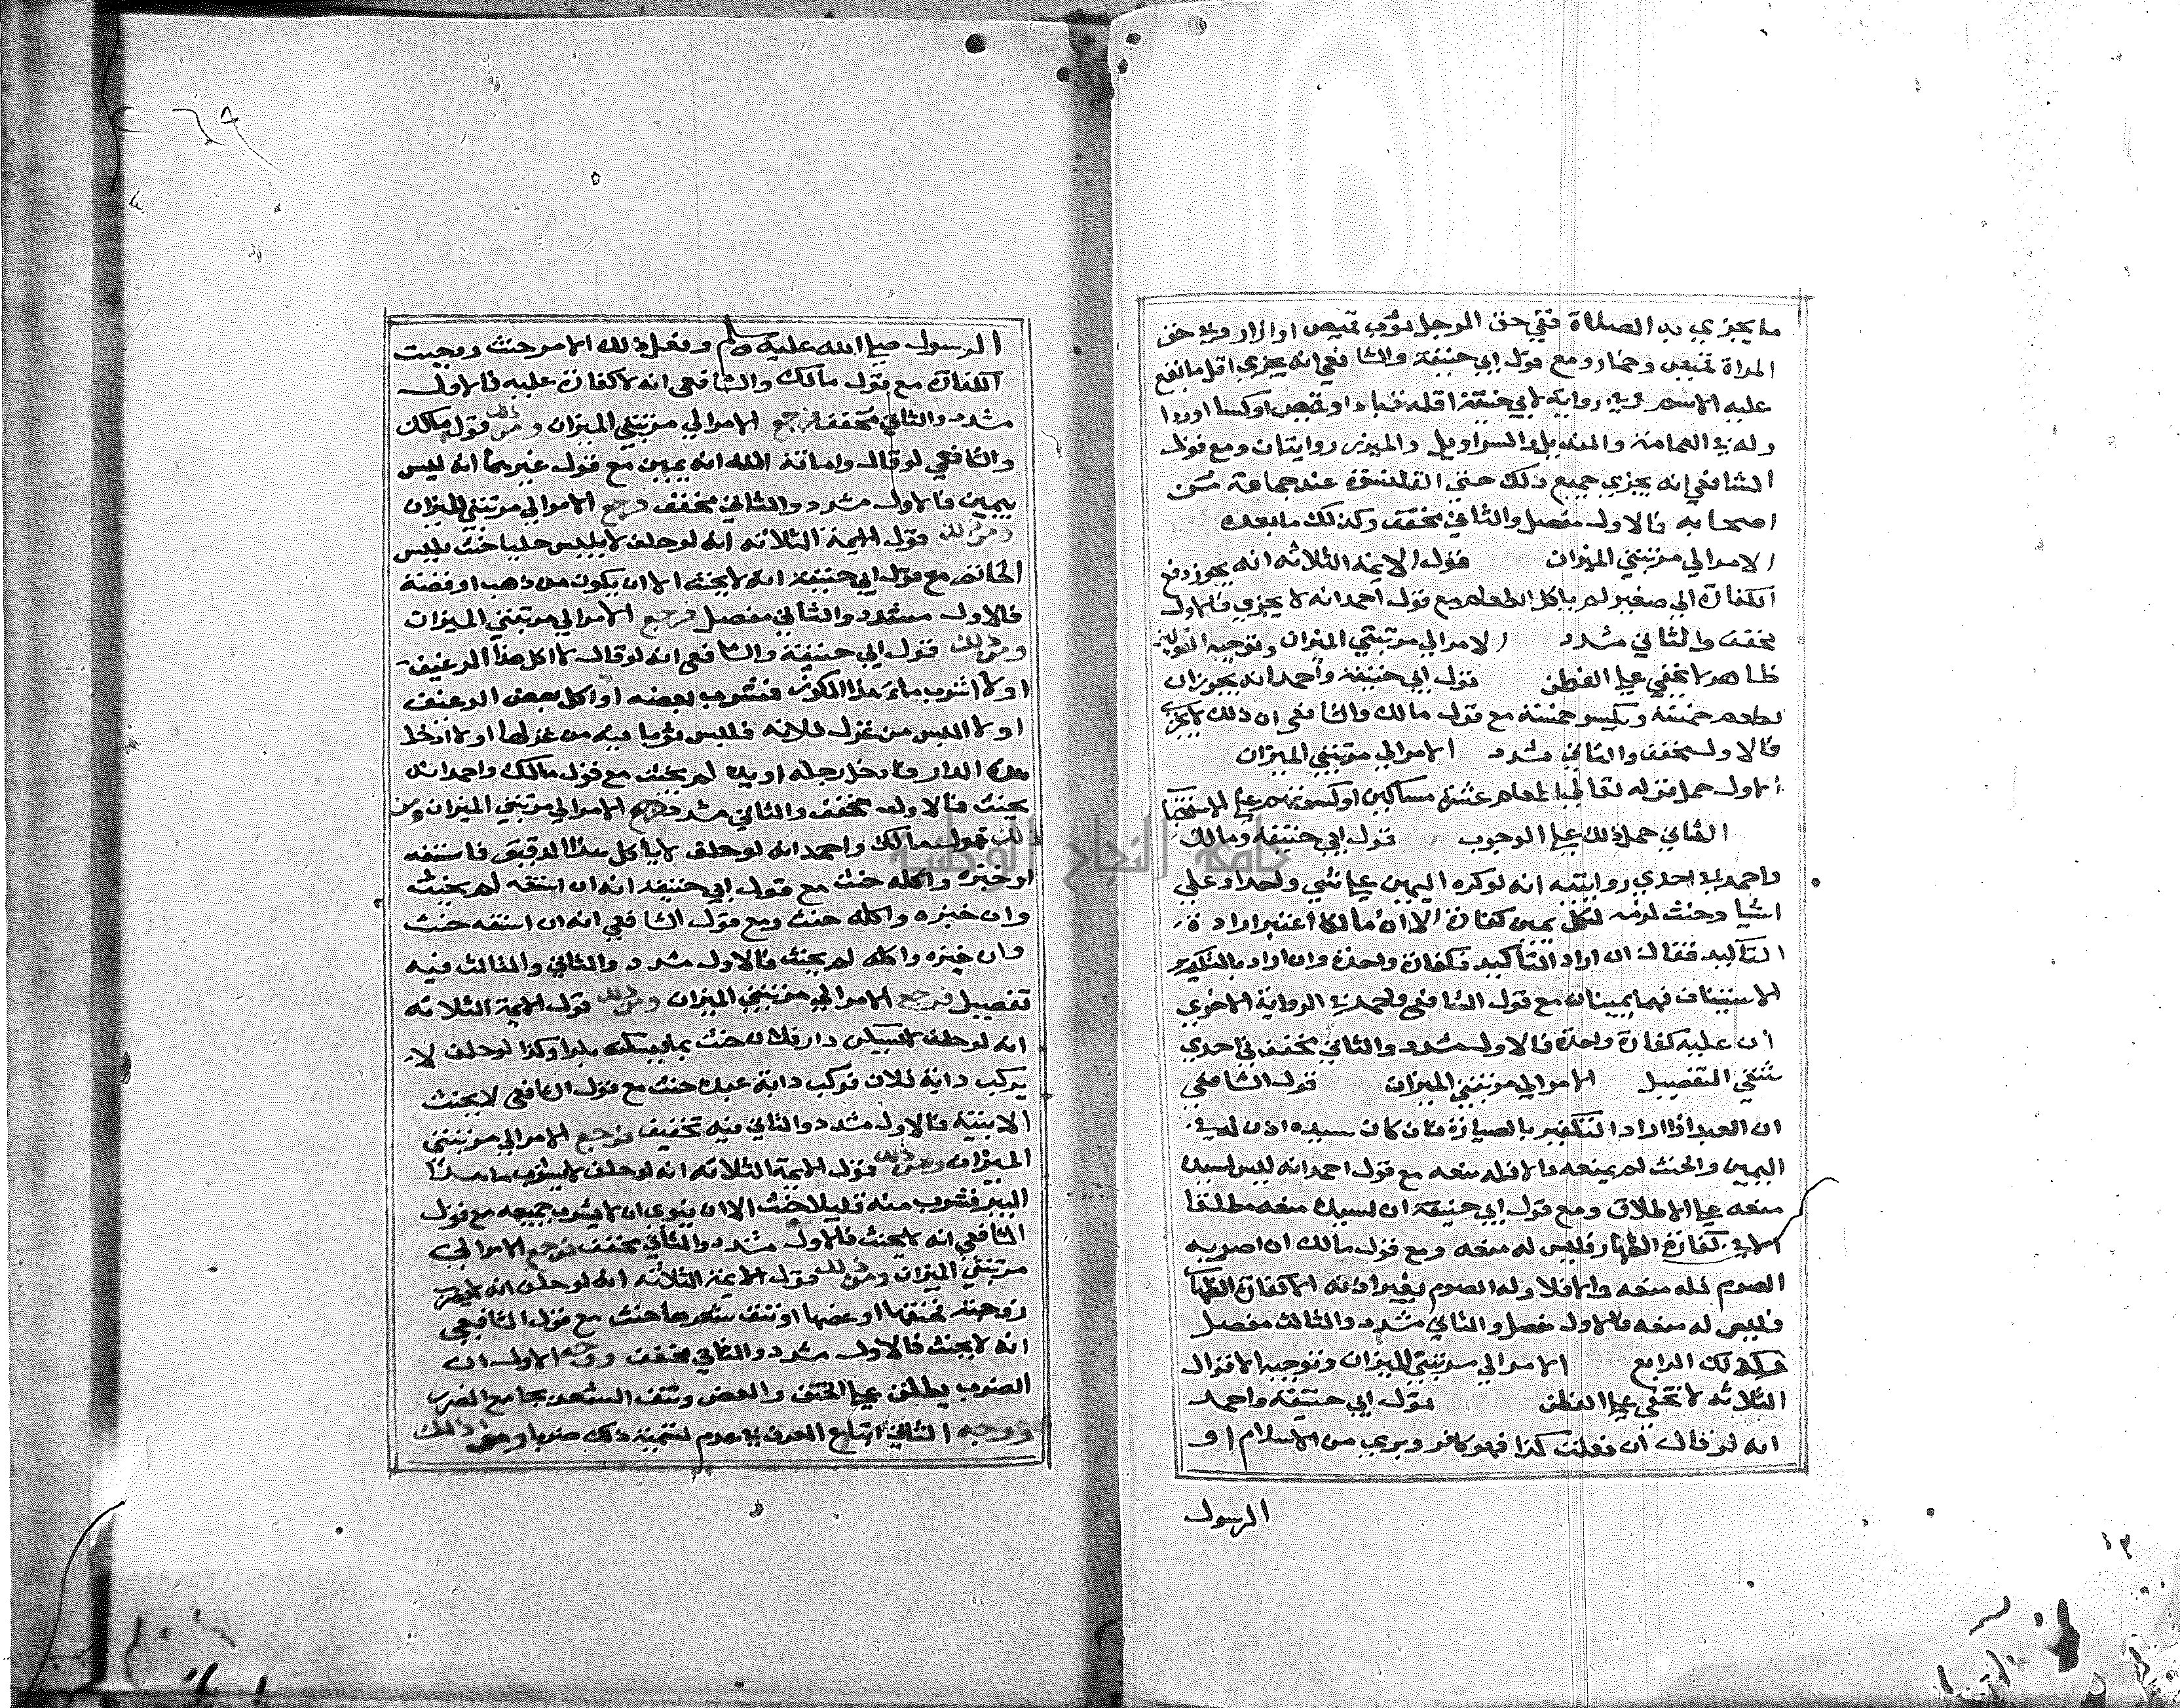 ما يجزي به الصلاة ففي حق الرجل ثوب قميص او ازار وفي حق
المراة قميص وخمار ومع قول ابي حنيفة والشافعي انه يجزي اقل ما يقع
عليه الاسم وفي رواية لابي حنيفة اقله قباء او قميص او كسا او ردا
وله في العمامة والمنديل والسراويل والميزر روايتان ومع قول
الشافعي انه يجزي جميع ذلك حتى القلنسوة عند جماعة من
اصحابه فالاول مفصل والثاني مخفف وكذلك ما بعده
الامر الي مرتبتي الميزان قول الايمة الثلاثه انه يجوز دفع
الكفارة الي صغير لم ياكل الطعام مع قول احمد انه لا يجزي فالاول
مخفف والثاني مشدد الامر الي مرتبتي الميزان وتوجيه القولين
ظاهر لا يخفي علي الفطن قول ابي حنيفة واحمد انه يجوز ان
يطعم خمسة ويكسو خمسة مع قول مالك والشافعي ان ذلك لا يجزي
فالاول مخفف والثاني مشدد الامر الي مرتبتي الميزان
الاول حمل قوله تعالي اطعام عشرة مساكين او كسوتهم علي الاستحباب
الثاني حمل ذلك علي الوجوب قول ابي حنيفه ومالك
واحمد في احدي روايتيه انه لو كرر اليمين علي شي واحد او علي
اشيا وحنث لزمه لكل يمين كفارة الا ان مالكا اعتبر ارادة
التاكيد فقال ان اراد التاكيد فكفارة واحدة وان اراد بالتكرير
الاستيناف فهما يمينان مع قول الشافعي واحمد في الرواية الاخري
ان عليه كفارة واحدة فالاول مشدد والثاني مخفف في احدي
شقي التفصيل الامر الي مرتبتي الميزان قول الشافعي
ان العبد اذا اراد التكفير بالصيام فان كان سيده اذن له في
اليمين والحنث لم يمنعه والا فله منعه مع قول احمد انه ليس لسيده
منعه علي الاطلاق ومع قول ابي حنيفة ان لسيده منعه مطلقا
الا في كفارة الظهار فليس له منعه ومع قول مالك ان اضر به
الصوم فله منعه والا فلا وله الصوم بغير اذنه الا كفارة الظهار
فليس له منعه فالاول مفصل والثاني مشدد والثالث مفصل
وكذلك الرابع الامر الي مرتبتي الميزان وتوجيه الاقوال
الثلاثه لا تخفي علي الفطن قول ابي حنيفه واحمد
انه لو قال ان فعلت كذا فهو كافر وبري من الاسلام او
الرسول
الرسول صلي الله عليه وسلم وفعل ذلك الامر حنث ووجبت
الكفارة مع قول مالك والشافعي انه لا كفارة عليه فالاول
مشدد والثاني مخفف فرجع الامر الي مرتبتي الميزان ومن ذلك قول مالك
والشافعي لو قال وامانة الله انه يمين مع قول غيرهما انه ليس
بيمين فالاول مشدد والثاني مخفف فرجع الامر الي مرتبتي الميزان
ومن ذلك قول الايمة الثلاثه انه لو حلف لا يلبس حليا حنث بلبس
الخاتم مع قول ابي حنيفة انه لا يحنث الا ان يكون من ذهب او فضة
فالاول مشدد والثاني مفصل فرجع الامر الي مرتبتي الميزان
ومن ذلك قول ابي حنيفة والشافعي انه لو قال لا اكل هذا الرغيف
او لا اشرب ماء هذا الكوز فشرب بعضه او اكل بعض الرغيف
او لا البس من غزل فلانه فلبس ثوبا فيه من غزلها او لا ادخل
هذه الدار فادخل رجله او يده لم يحنث مع قول مالك واحمد انه
يحنث فالاول مخفف والثاني مشدد فرجع الامر الي مرتبتي الميزان ومن
ذلك قول مالك واحمد انه لو حلف لا ياكل هذا الدقيق فاستفه
او خبزه واكله حنث مع قول ابي حنيفه انه ان استفه لم يحنث
وان خبزه واكله حنث ومع قول الشافعي انه ان استفه حنث
وان خبزه واكله لم يحنث فالاول مشدد والثاني والثالث فيه
تفصيل فرجع الامر الي مرتبتي الميزان ومن ذلك قول الايمة الثلاثه
انه لو حلف لا يسكن دار فلان حنث بما يسكنه بكرا وكذا لو حلف لا
يركب دابة فلان فركب دابة عبده حنث مع قول الشافعي لا يحنث
الا بنية فالاول مشدد والثاني فيه تخفيف فرجع الامر الي مرتبتي
الميزان ومن ذلك قول الايمة الثلاثه انه لو حلف لا يشرب ما هذا
البير فشرب منه قليلا حنث الا ان ينوي ان لا يشرب جميعه مع قول
الشافعي انه لا يحنث فالاول مشدد والثاني مخفف فرجع الامر الي
مرتبتي الميزان ومن ذلك قول الايمة الثلاثه انه لو حلف انه لا يضرب
زوجته فخنقها او عضها او نتف شعرها حنث مع قول الشافعي
انه لا يحنث فالاول مشدد والثاني مخفف ووجه الاول ان
الضرب يطلق علي الخنق والعض ونتف الشعر بجامع الضرر
ووجه الثاني اتباع العرف في عدم تسمية ذلك ضربا ومن ذلك
جامعة النجاح الوطنية